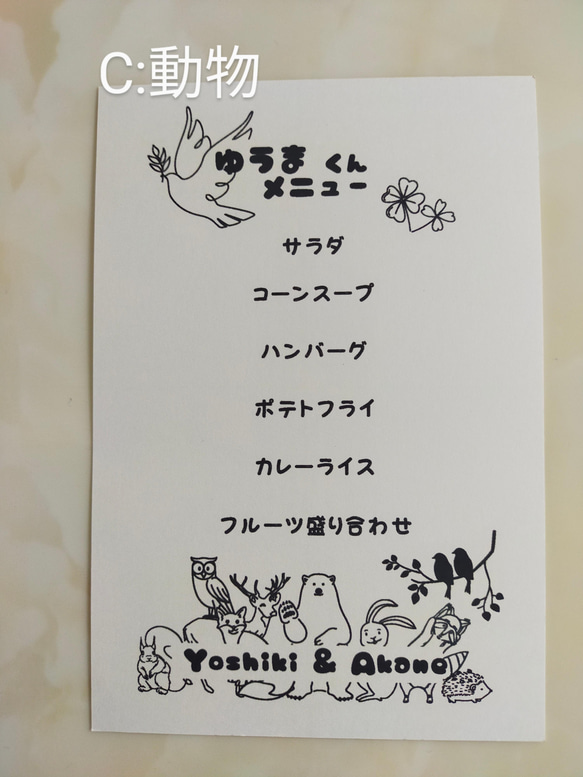 C:動物
ゆうま くん
メニュー
サラダ
コーンスープ
ハンバーグ
ポテトフライ
カレーライス
フルーツ盛り合わせ
Yoshiki & Akane